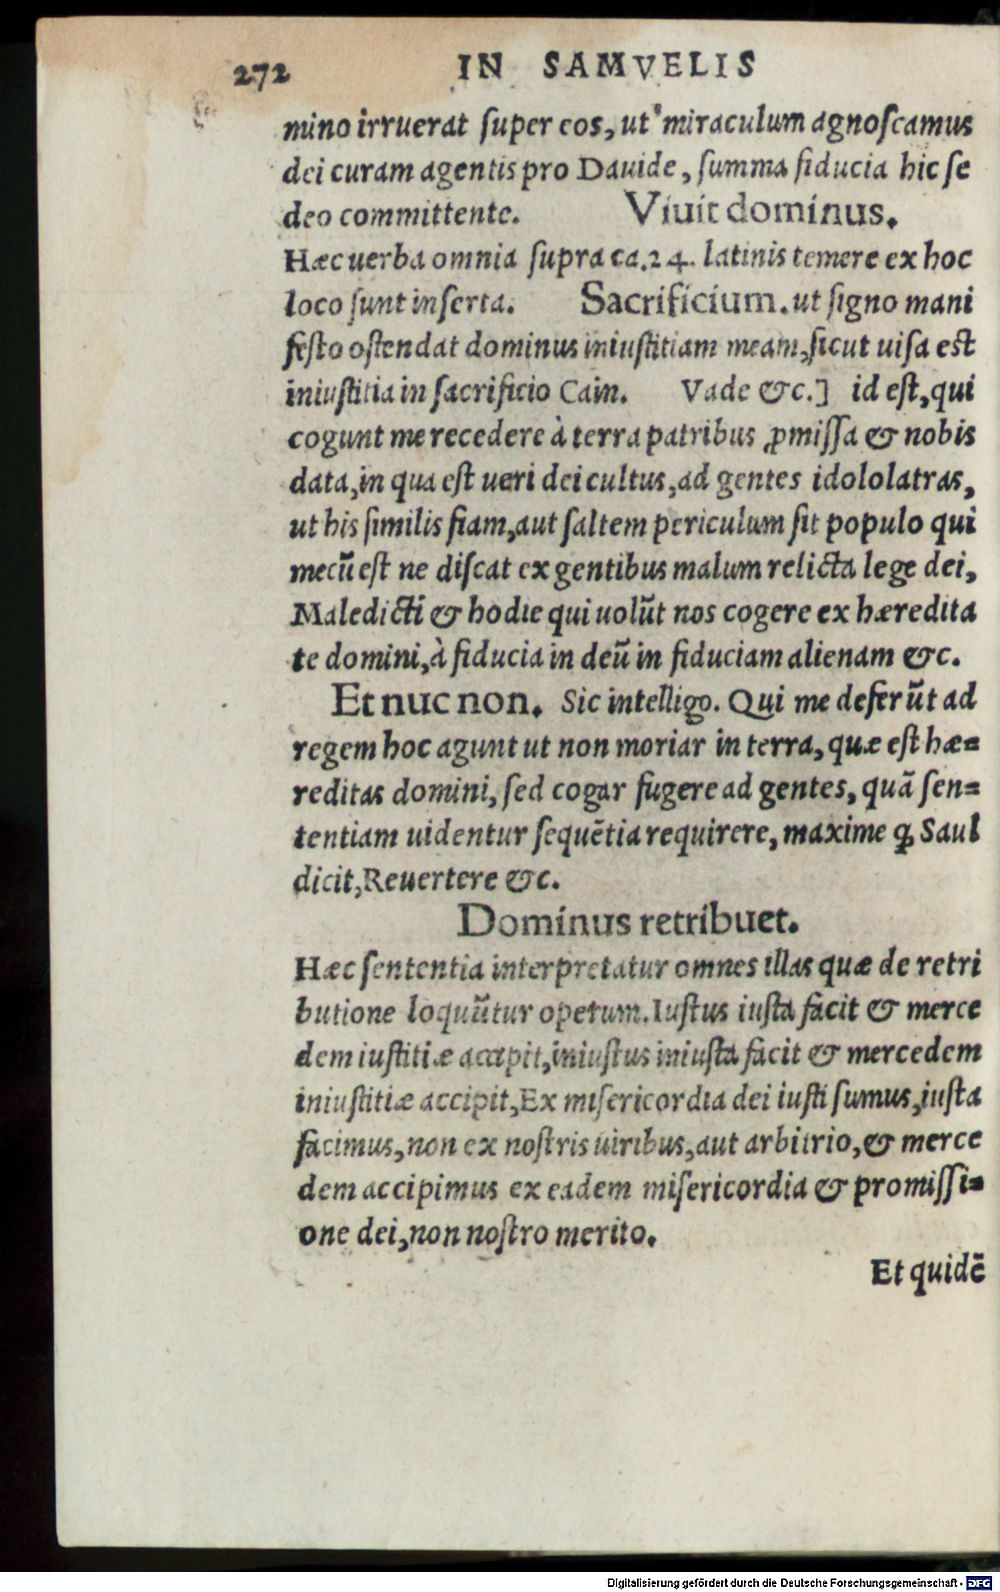 272 IN SAMVELIS
mino irruerat ſuper eos, ut miraculum agnoſcamus
dei curam agentis pro Dauide, ſumma fiducia hic ſe
deo committente. Viuit dominus.
Hæc uerba omnia ſupra ca. 24. latinis temere ex hoc
loco ſunt inſerta. Sacrificium. ut ſigno mani
feſto oſtendat dominus iniuſtitiam meam, ſicut uiſa eſt
iniuſtitia in ſacrificio Cain. Vade &c.] id eſt, qui
cogunt me recedere à terra patribus ꝓmiſſa & nobis
data, in qua eſt ueri dei cultus, ad gentes idololatras,
ut his ſimilis fiam, aut ſaltem periculum ſit populo qui
mecū eſt ne diſcat ex gentibus malum relicta lege dei,
Maledicti & hodie qui uolūt nos cogere ex hæredita
te domini, à fiducia in deū in fiduciam alienam &c.
Et nuc non. Sic intelligo. Qui me deferūt ad
regem hoc agunt ut non moriar in terra, quæ eſt hæ=
reditas domini, ſed cogar fugere ad gentes, quā ſen=
tentiam uidentur ſequētia requirere, maxime ꝙ Saul
dicit, Reuertere &c.
Dominus retribuet.
Hæc ſententia interpretatur omnes illas quæ de retri
butione loquūtur operum. Iuſtus iuſta facit & merce
dem iuſtitiæ accipit, iniuſtus iniuſta facit & mercedem
iniuſtitiæ accipit, Ex miſericordia dei iuſti ſumus, iuſta
facimus, non ex noſtris uiribus, aut arbitrio, & merce
dem accipimus ex eadem miſericordia & promiſſi=
one dei, non noſtro merito.
Et quidē
Digitalisierung gefördert durch die Deutsche Forschungsgemeinschaft - DFG